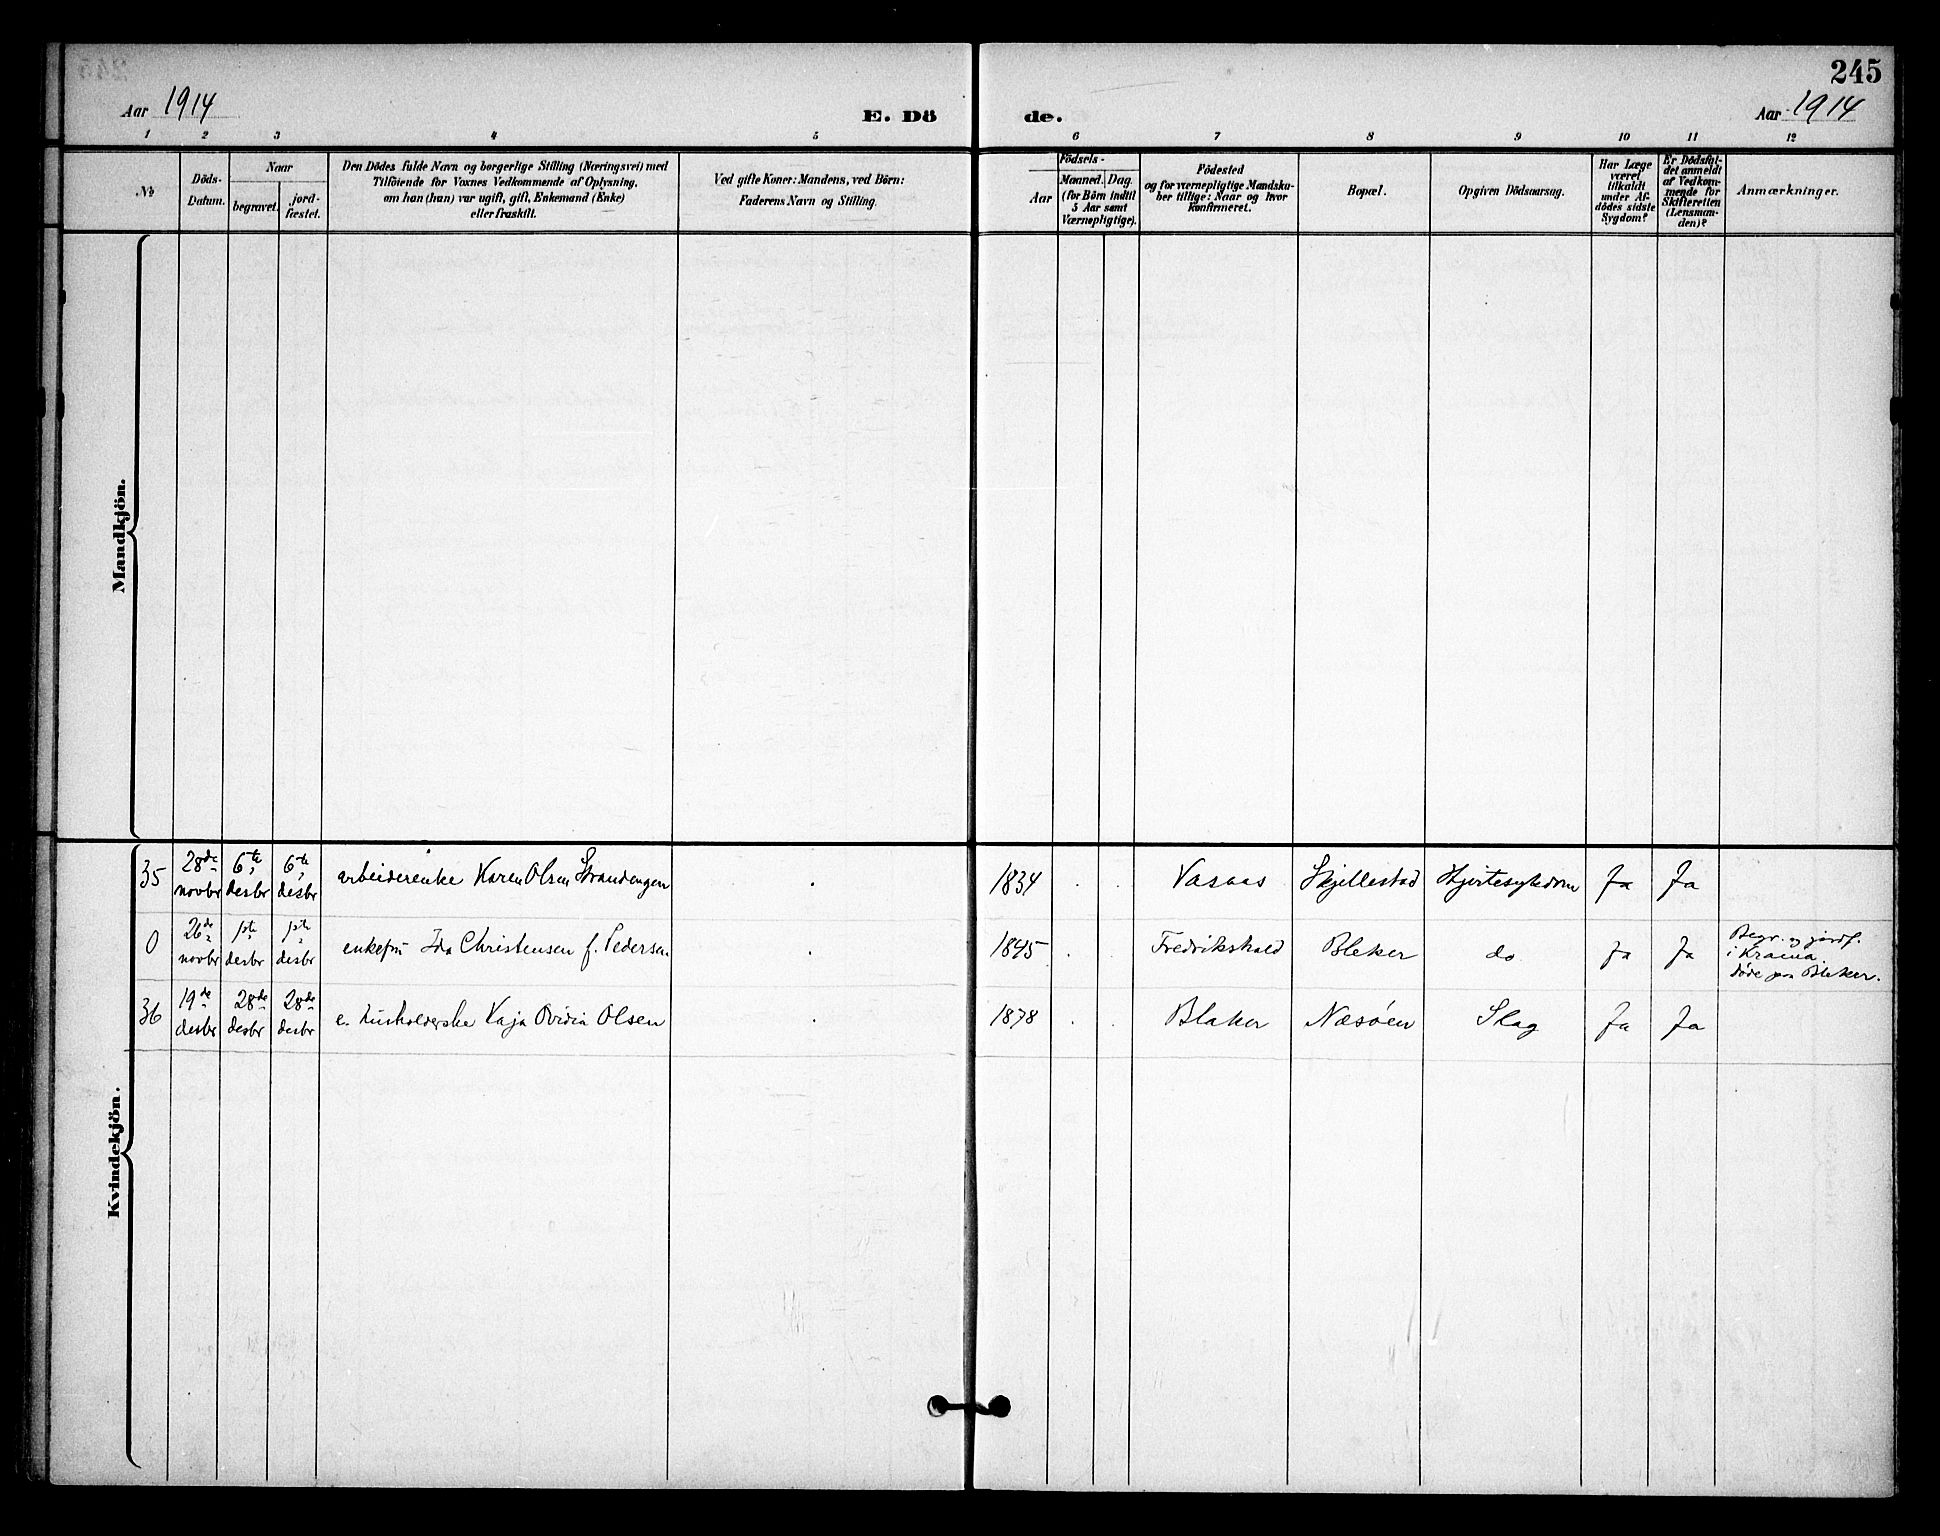 245
Aar 1914
E. Dö
de.
Aar 1914
1 2 3 4 5 6 7 8 9 10 11 12
№
Döds-
Datum.
Naar
begravet.
jord-
fæstet.
Den Dödes fulde Navn og borgerlige Stilling (Næringsvei) med
Tilföiende for Voxnes Vedkommende af Oplysning,
om han (hun) var ugift, gift, Enkemand (Enke)
eller fraskilt.
Ved gifte Koner: Mandens, ved Börn:
Faderens Navn og Stilling.
Födsels-
Aar
Maaned. Dag.
(for Börn indtil
5 Aar samt
Værnepligtige).
Födested
og for værnepligtige Mandska-
ber tillige: Naar og hvor
konfirmeret.
Bopæl.
Opgiven Dödsaarsag.
Har Læge
været
tilkaldt
under Af-
dödes sidste
Sygdom?
Er Dödsfal-
det anmeldt
af Vedkom-
mende for
Skifteretten
(Lensman-
den)?
Anmærkninger.
Mandkjön.
Kvindekjön.
35 28de novbr 6te desbr 6te desbr arbeiderenke Karen Olsen Strandengen 1834 Vasaas Skjellestad Hjertesykdom Ja Ja
0 26de novbr 1ste desbr 1ste desbr enkefru Ida Christensen f. Pedersen 1845 Fredrikshald Bleker do Ja Ja
Begr. og jordf.
i
Døde paa Bleker.
36 19de desbr 28de desbr 28de desbr e. husholderske Kaja Ovidia Olsen 1878 Blaker Næsøen Slag Ja Ja